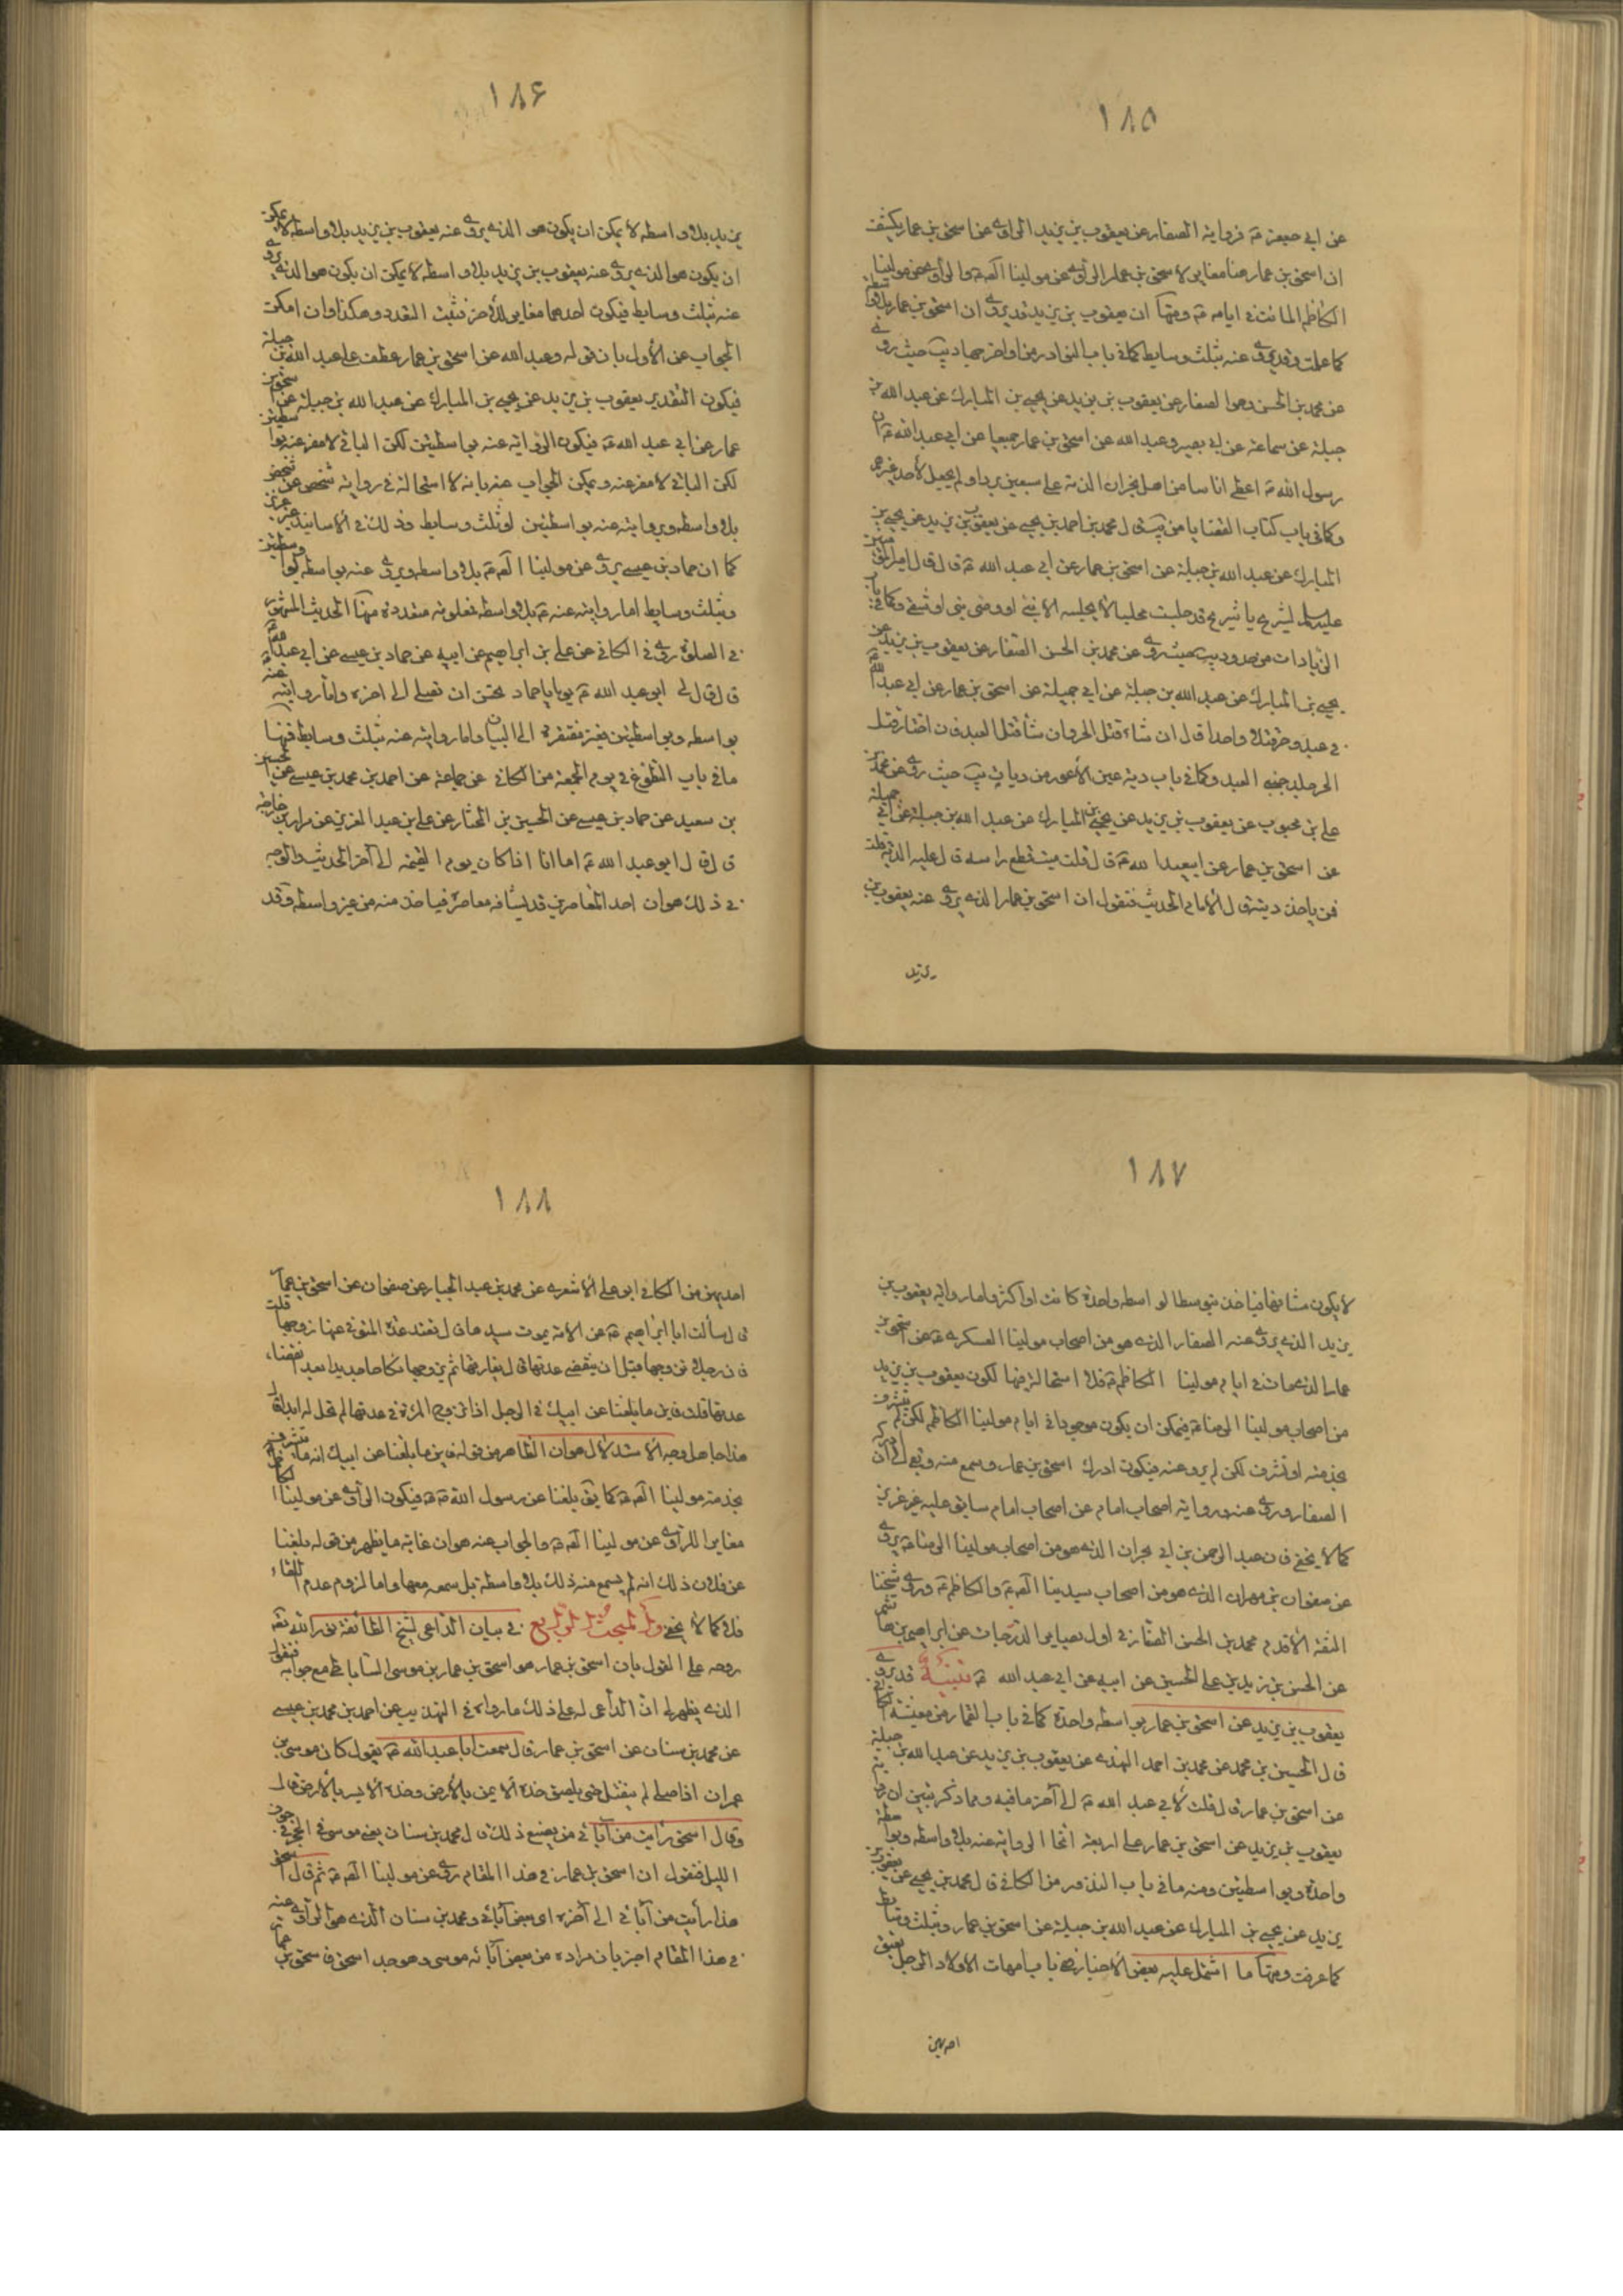 ١٨٥
عن ابي جعفر ع فرواية الصفار عن يعقوب بن يزيد الراوي عن اسحق بن عمار يكشف
ان اسحق بن عمار هنا مغاير لاسحق بن عمار الراوي عن مولينا الصادق ع والراوي عن مولينا
الكاظم المائت في ايامه ع ومنها ان يعقوب بن يزيد قد يروي ان اسحق بن عمار بلا واسطة
كما علمت وقد يروي عنه بثلث وسايط كما في باب النوادر من اواخر جهاد يب حيث روى
عن محمد بن الحسن وهو الصفار عن يعقوب بن يزيد عن يحيى بن المبارك عن عبد الله بن
جبلة عن سماعة عن ابي بصير وعبد الله عن اسحق بن عمار جميعا عن ابي عبد الله ع ان
رسول الله ص اعطى اناسا من اهل نجران الذمة على سبعين بردا ولم يجعل لأحد غيرهم
وكما في باب كتاب القضايا من يب قال محمد بن احمد بن يحيى عن يعقوب بن يزيد عن يحيى بن
المبارك عن عبد الله بن جبلة عن اسحق بن عمار عن ابي عبد الله ع قال قال امير المؤمنين
عليه السلام لشريح يا شريح قد جلست مجلسا لا يجلسه الا نبي او وصي نبي او شقي وكما في باب
الزيادات من حدود يب حيث روى عن محمد بن الحسن الصفار عن يعقوب بن يزيد عن
يحيى بن المبارك عن عبد الله بن جبلة عن ابي جميلة عن اسحق بن عمار عن ابي عبد الله ع
في عبد وحر قتلا واحدا قال ان شاء قتل الحر وان شاء قتل العبد فان اختار قتل
الحر جلد جنبي العبد وكما في باب دية عين الأعور من ديات يب حيث روى عن محمد بن
علي بن محبوب عن يعقوب بن يزيد عن يحيى بن المبارك عن عبد الله بن جبلة عن ابي جميلة
عن اسحق بن عمار عن ابي عبد الله ع قال قلت ميت قطع راسه قال عليه الدية قلت
فمن ياخذ ديته قال الأمام الحديث فنقول ان اسحق بن عمار الذي يروي عنه يعقوب بن
يزيد
١٨۶
يزيد بلا واسطه لا يمكن ان يكون هو الذي يروي عنه يعقوب بن يزيد بلا واسطه لا يمكن
ان يكون هو الذي يروي عنه يعقوب بن يزيد بلا واسطه لا يمكن ان يكون هو الذي يروي
عنه بثلث وسايط فيكون احدهما مغاير للأخر فثبت التعدد وهكذا وان امكن
الجواب عن الأول بان قوله وعبد الله عن اسحق بن عمار عطف على عبد الله بن جبلة
فيكون التقدير يعقوب بن يزيد عن يحيى بن المبارك عن عبد الله بن جبلة عن اسحق بن
عمار عن ابي عبد الله ع فيكون الرواية عنه بواسطتين لكن الباقي لا مفر عنه
لكن الباقي لا مفر عنه ويمكن الجواب عنه بانه لا استحالة في رواية شخص عن شخص
بلا واسطه وبروايته عنه بواسطتين او ثلث وسايط وذلك في الأسانيد غير عزيز
كما ان حماد بن عيسى يروي عن مولينا الصادق ع بلا واسطه ويروي عنه بواسطه وبواسطتين
وبثلث وسايط اما روايته عنه ع بلا واسطه فعلى نه متعددة منها الحديث المشهور
في الصلوة روى في الكافي عن علي بن ابراهيم عن ابيه عن حماد بن عيسى عن ابي عبد الله ع
قال قال لي ابو عبد الله ع يوما يا حماد تحسن ان تصلي الى اخره واما روايته عنه
بواسطه وبواسطتين فغير مفتقرة الى البيان واما روايته عنه بثلث وسايط فمنها
ما في باب التطوع في يوم الجمعة من الكافي عن جماعة عن احمد بن محمد بن عيسى عن الحسين
بن سعيد عن حماد بن عيسى عن الحسين بن المختار عن علي بن عبد العزيز عن مراد بن خارجة
قال قال ابو عبد الله ع اما انا اذا كان يوم الجمعة الى آخر الحديث والوجه
في ذلك هو ان احد المعاصرين قد يشافه معاصره فياخذ منه من غير واسطه وقد
١٨٧
لا يكون مشافها فياخذ بتوسط الواسطه واحدة كانت او اكثر واما رواية يعقوب بن
يزيد الذي يروي عنه الصفار الذي هو من اصحاب مولينا العسكري ع عن اسحق بن
عمار الذي مات في ايام مولينا الكاظم ع فلا استحالة فيها لكون يعقوب بن يزيد
من اصحاب مولينا الرضا ع فيمكن ان يكون موجودا في ايام مولينا الكاظم لكن لم يتشرف
بخدمته او تشرف لكن لم يرو عنه فيكون ادرك اسحق بن عمار وسمع منه وبقي الى ان ادركه
الصفار وروى عنه ورواية اصحاب امام عن اصحاب امام سابق عليه غير عزيز
كما لا يخفى فان عبد الرحمن بن ابي نجران الذي هو من اصحاب مولينا الرضا ع يروي
عن صفوان بن مهران الذي هو من اصحاب سيدينا الصادق ع والكاظم ع وروى شيخنا
الثقة الأقدم محمد بن الحسن الصفار في اول بصاير الدرجات عن ابراهيم بن هاشم
عن الحسن بن زيد بن علي الحسين عن ابيه عن ابي عبد الله ع تنبيه قد يروي
يعقوب بن يزيد عن اسحق بن عمار بواسطه واحدة كما في باب القمار من معيشة الكافي
قال الحسين بن محمد عن محمد بن احمد النهدي عن يعقوب بن يزيد عن عبد الله بن جبلة
عن اسحق بن عمار قال قلت لأبي عبد الله ع الى آخر ما فيه ومما ذكر تبين ان رواية
يعقوب بن يزيد عن اسحق بن عمار على اربعة انحا الرواية عنه بلا واسطه وبواسطة
واحدة وبواسطتين ومنه ما في باب النذور من الكافي قال محمد بن يحيى عن يعقوب بن
يزيد عن يحيى بن المبارك عن عبد الله بن جبلة عن اسحق بن عمار وبثلث وسايط
كما عرفت ومنها ما اشتمل عليه بعض الأخبار في باب امهات الاولاد الرجل يعتق
احديهن
١٨٨
احديهن من الكافي ابو علي الأشعري عن محمد بن عبد الجبار عن صفوان عن اسحق بن عمار
قال سألت ابا ابراهيم ع عن الأمة يموت سيدها قال تعتد عدة المتوفى عنها زوجها قلت
فان رجلا تزوجها قبل ان تنقضي عدتها قال يفارقها ثم يتزوجها نكاحا جديدا بعد انقضاء
عدتها قلت فاين ما بلغنا عن ابيك في الرجل اذا تزوج المرأة في عدتها لم تحل له ابدا قال
هذا جاهل وجه الأستدلال هو ان الظاهر من قوله فاين ما بلغنا عن ابيك انه ما تشرف
بخدمة مولينا الصادق ع كما يق بلغنا عن رسول الله ص فيكون الراوي عن مولينا الكاظم
مغايرا للراوي عن مولينا الصادق ع والجواب عنه هو ان غاية ما يظهر من قوله بلغنا
عن فلان ذلك انه لم يسمع منه ذلك بلا واسطه بل سمعه معها واما لزوم عدم اللقاء
فلا كما لا يخفى والمبحث الرابع في بيان الداعي لشيخ الطائفة نور الله تعه
روحه على القول بان اسحق بن عمار هو اسحق بن عمار بن موسى الساباطي مع جوابه فنقول
الذي يظهر لي ان الداعي له على ذلك ما رواه في التهذيب عن احمد بن محمد بن عيسى
عن محمد بن سنان عن اسحق بن عمار قال سمعت ابا عبد الله ع يقول كان موسى بن
عمران اذا صلى لم ينفتل حتى يلصق خده الأيمن بالأرض وخده الأيسر بالأرض قال
وقال اسحق رأيت من آبائي من يصنع ذلك قال محمد بن سنان يعني موسى في الحجر في جوف
الليل فنقول ان اسحق بن عمار في هذا المقام روى عن مولينا الصادق ع ثم قال اسحق
هذا رأيت من آبائي الى آخره اي بعض آبائي ومحمد بن سنان الذي هو الراوي عنه
في هذا المقام اخبر بان مراده من بعض آبائه موسى وهو جد اسحق فاسحق بن عمار